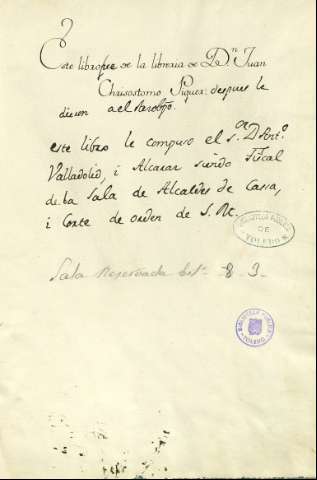 Este libro fue de la libreria de D.n Juan
Chrisostomo Piquer: despues le
dieron
este libro le compuso el s.or D. Ant.o
Valladolid, i Alcazar siendo fiscal
de la Sala de Alcaldes de Cassa,
i Corte de orden de S. M.
BIBLIOTECA PUBLICA
DE
TOLEDO
Sala Reservada Est. 8-3-
BIBLIOTECA PUBLICA
TOLEDO